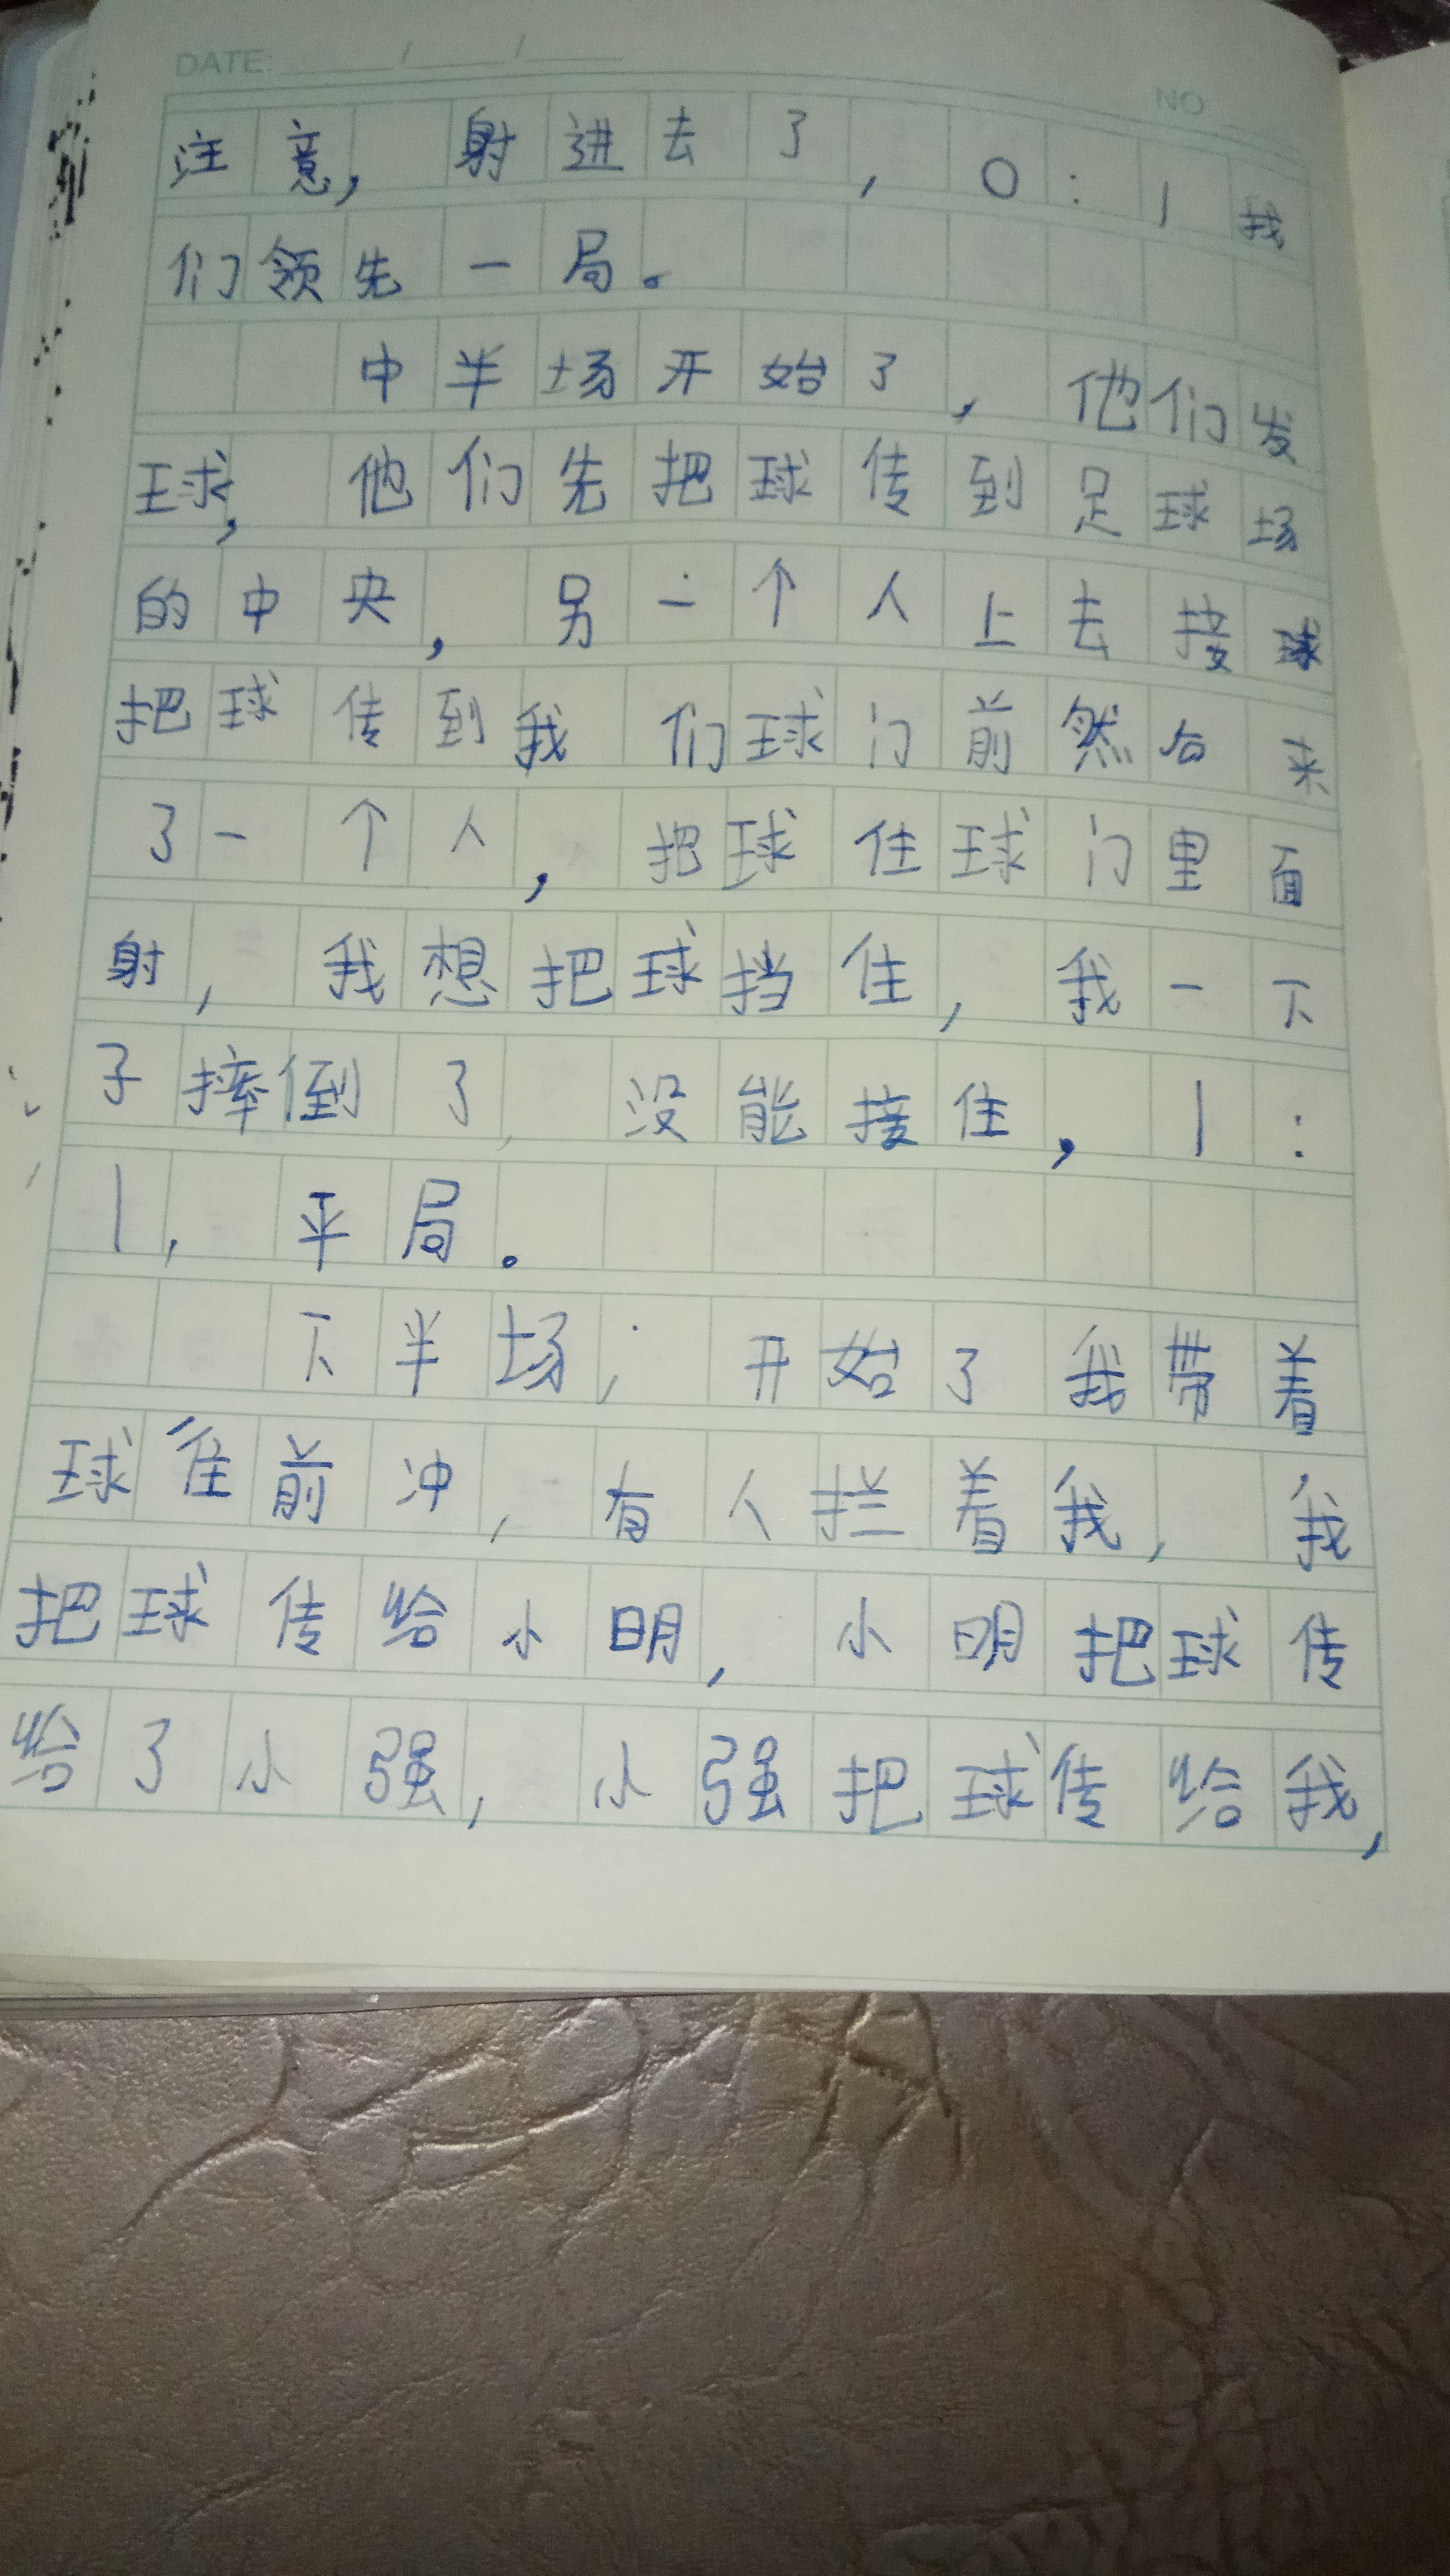 DATE: / /
NO
注意，射进去了，0:1我
们领先一局。
中半场开始了，他们发
球，他们先把球传到足球场
的中央，另一个人上去接球
把球传到我们球门前然后来
了一个人，把球住球门里面
射，我想把球挡住，我一下
子摔倒了，没能接住，1:
1，平局。
下半场，开始了我带着
球往前冲，有人拦着我，我
把球传给小明，小明把球传
给了小强，小强把球传给我，